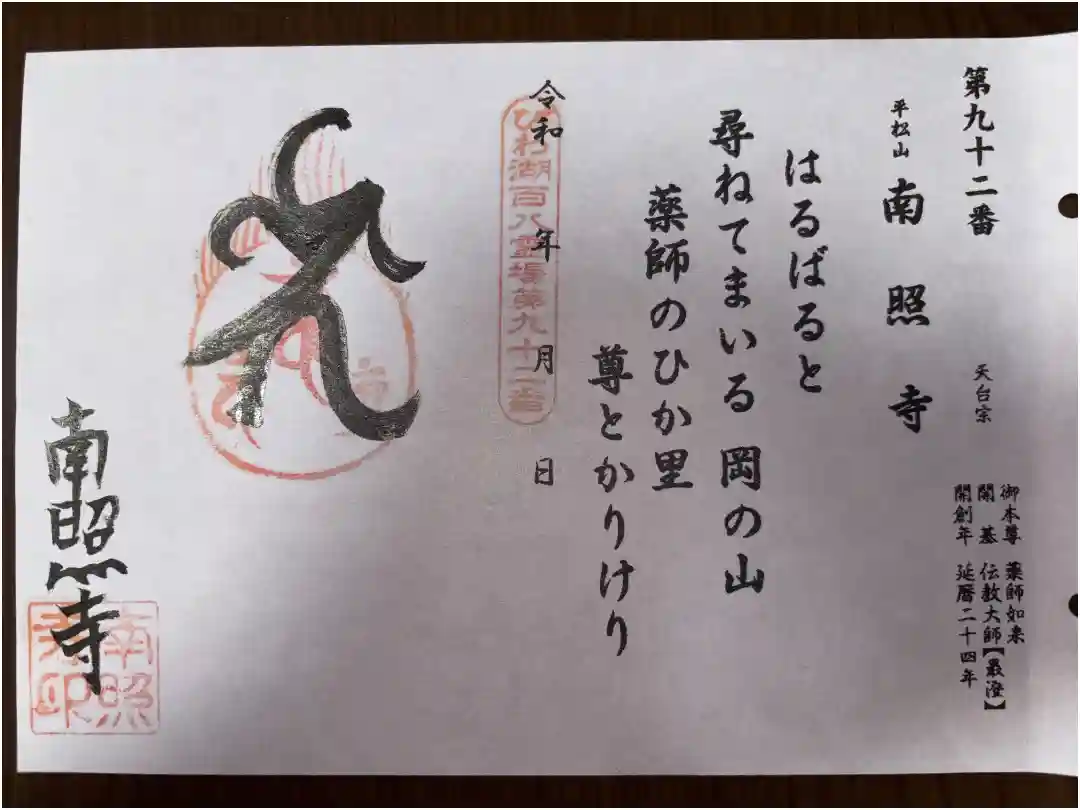 第九十二番
平松山 南照寺
天台宗
御本尊 薬師如来
開基 伝教大師【最澄】
開創年 延暦二十四年
はるばると
尋ねてまいる 岡の山
薬師のひか里
尊とかりけり
令和 年 月 日
びわ湖百八霊場第九十二番
南照寺
南照
印